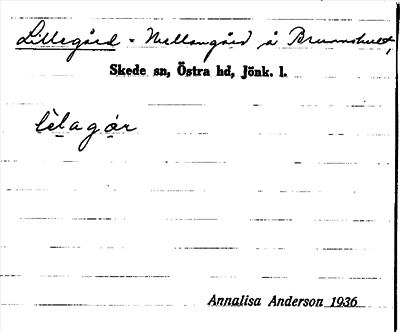 Lillegård - Mellangård å Brunnshult,
Skede sn, Östra hd, Jönk. l.
lèlagór
Annalisa Anderson 1936